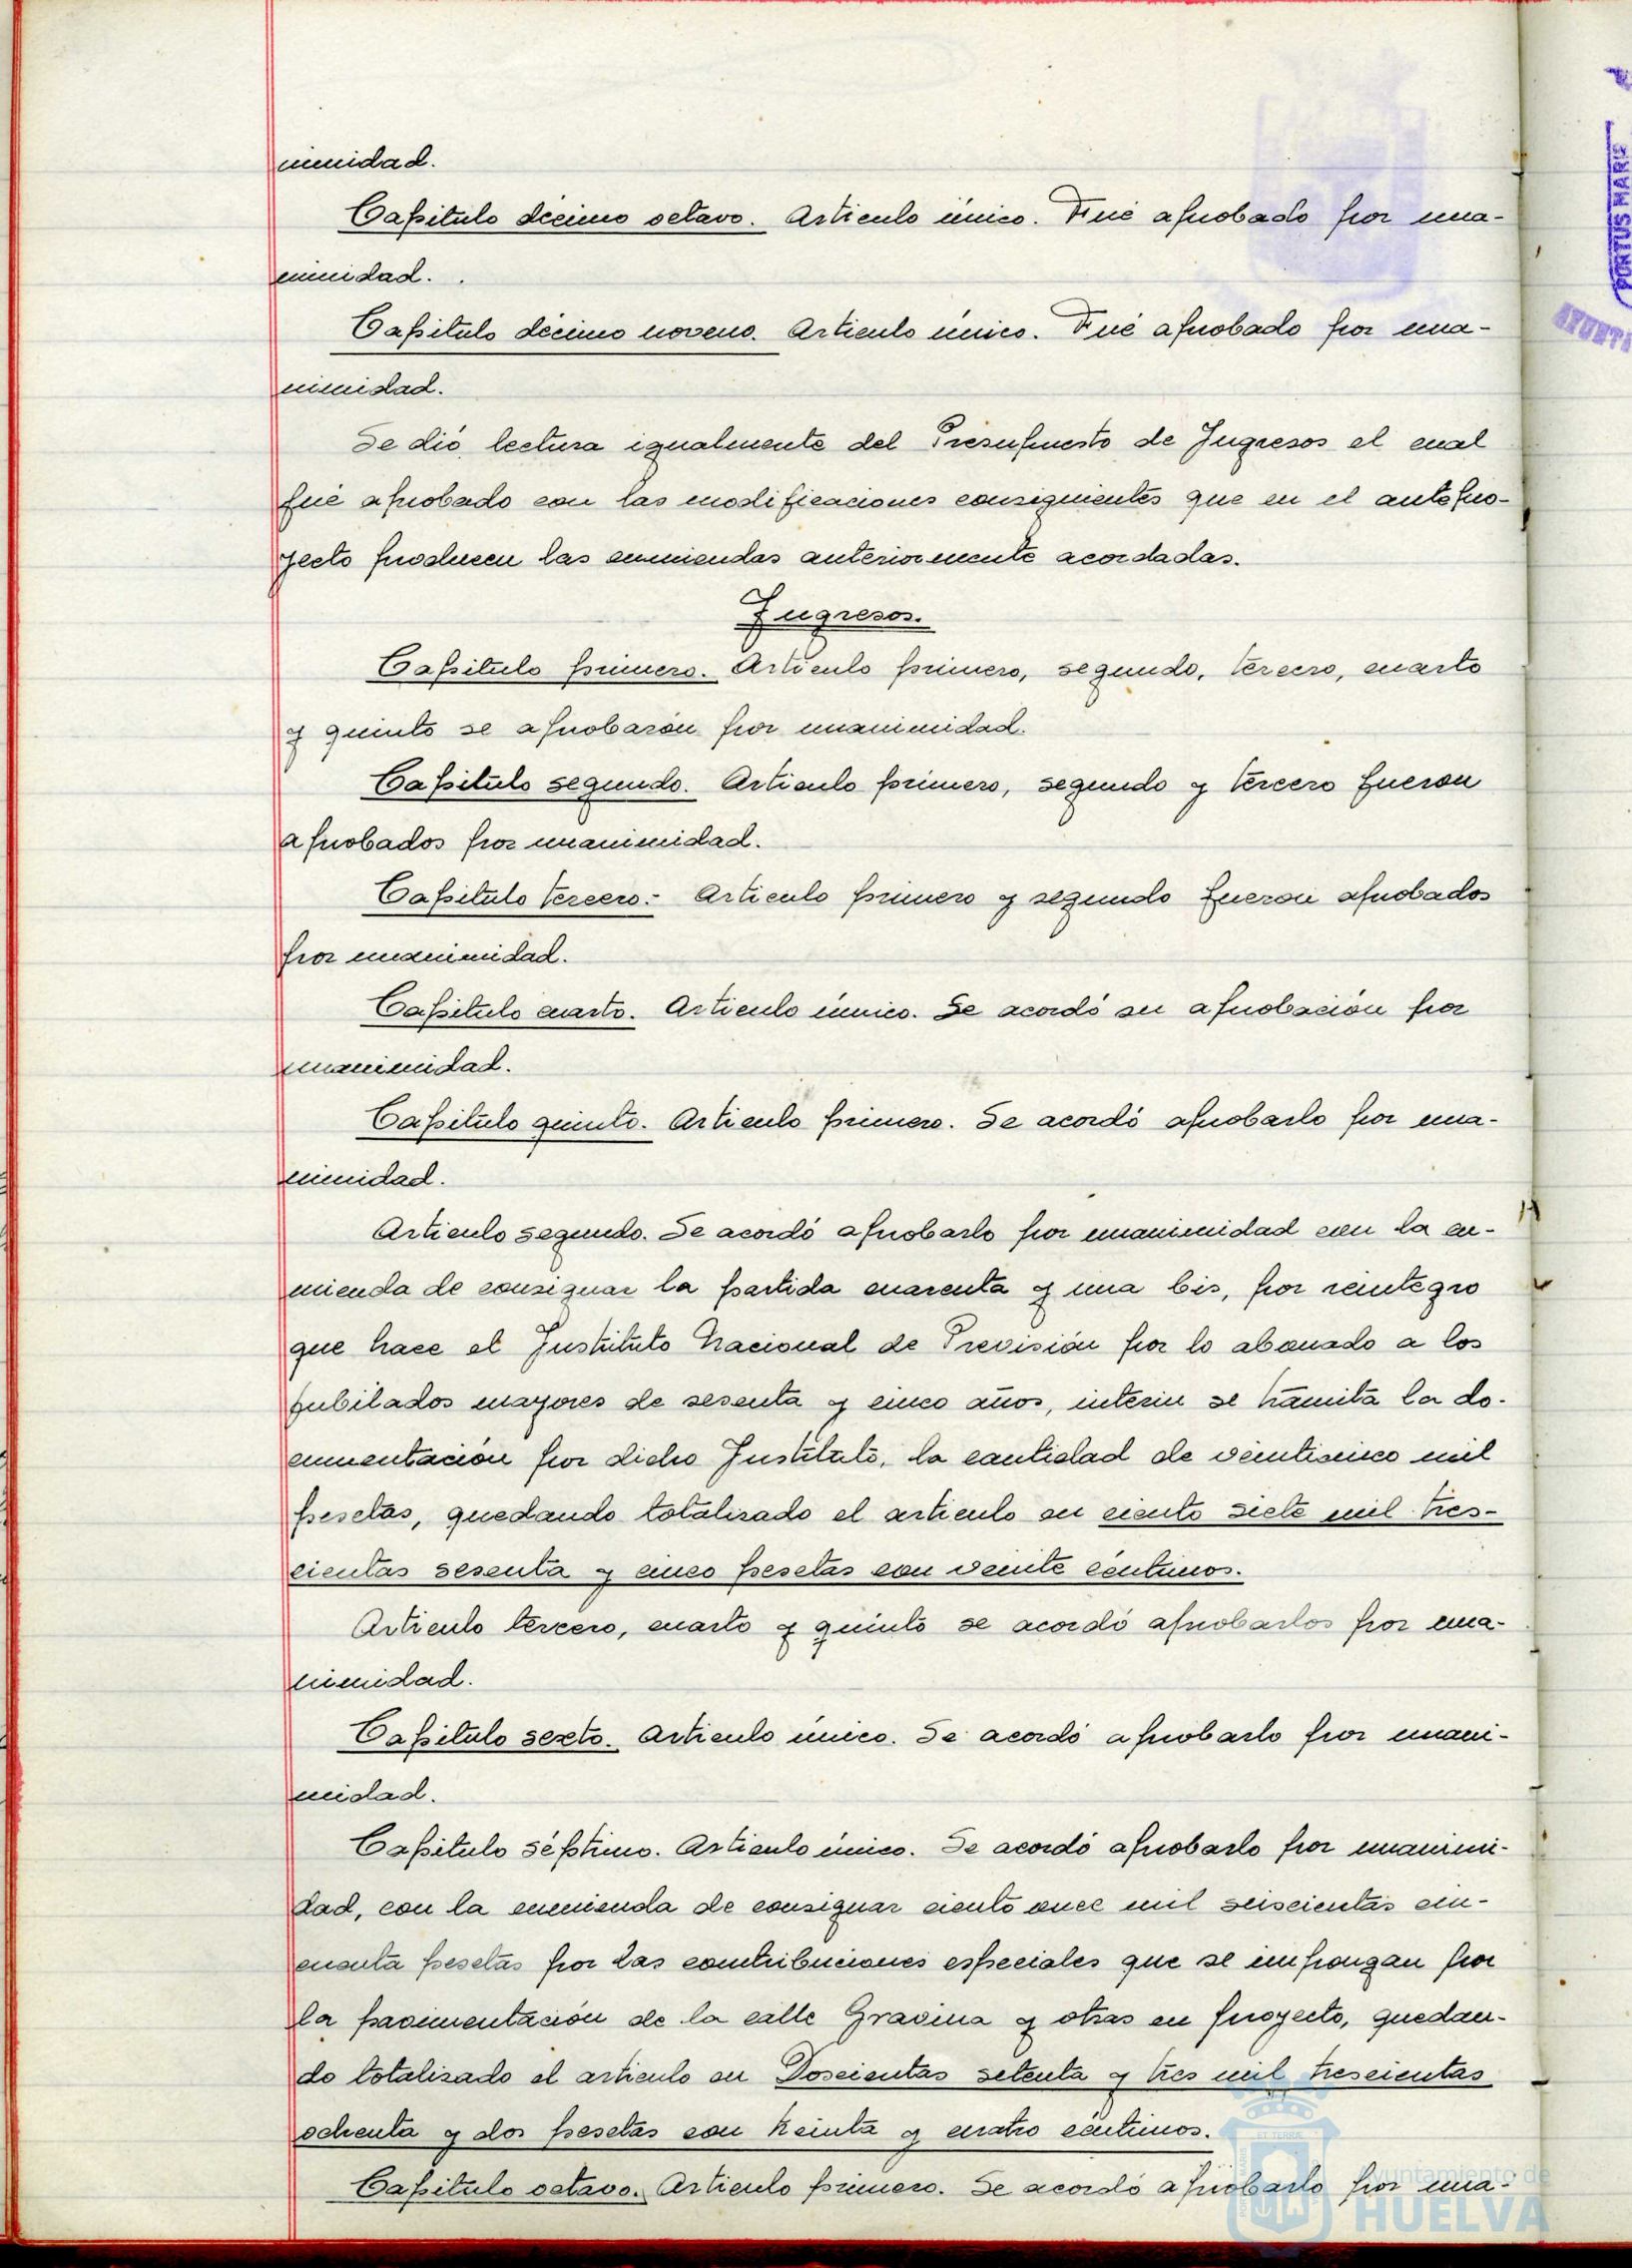 nimidad.
Capitulo décimo octavo. Articulo único. Fué aprobado por una-
nimidad.
Capitulo décimo noveno. Articulo único. Fué aprobado por una-
nimidad.
Se dió lectura igualmente del Presupuesto de Ingresos el cual
fué aprobado con las modificaciones consiguientes que en el antepro-
yecto producen las enmiendas anteriormente acordadas.
Ingresos.
Capitulo primero. Articulo primero, segundo, tercero, cuarto
y quinto se aprobarón por unanimidad.
Capitulo segundo. Articulo primero, segundo y tercero fueron
aprobados por unanimidad.
Capitulo tercero.- Articulo primero y segundo fueron aprobados
por unanimidad.
Capitulo cuarto. Articulo único. Se acordó su aprobación por
unanimidad.
Capitulo quinto. Articulo primero. Se acordó aprobarlo por una-
nimidad.
Articulo segundo. Se acordó aprobarlo por unanimidad con la en-
mienda de consignar la partida cuarenta y una bis, por reintegro
que hace el Instituto Nacional de Previsión por lo abonado a los
jubilados mayores de sesenta y cinco años, interin se tramita la do-
cumentación por dicho Instituto, la cantidad de veinticinco mil
pesetas, quedando totalizado el articulo en ciento siete mil tres-
cientas sesenta y cinco pesetas con veinte céntimos.
Articulo tercero, cuarto y quinto se acordó aprobarlos por una-
nimidad.
Capitulo sexto. Articulo único. Se acordó aprobarlo por unani-
midad.
Capitulo séptimo. Articulo único. Se acordó aprobarlo por unanimi-
dad, con la enmienda de consignar ciento once mil seiscientas cin-
cuenta pesetas por las contribuciones especiales que se impongan por
la pavimentación de la calle Gravina y otras en proyecto, quedan-
do totalizado el articulo en Doscientas setenta y tres mil trescientas
ochenta y dos pesetas con treinta y cuatro céntimos.
Capitulo octavo. Articulo primero. Se acordó aprobarlo por una-
PORTUS MARIS
Ayuntamiento de
HUELVA